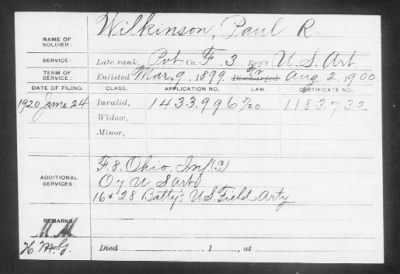 NAME OF SOLDIER: Wilkinson, Paul R.
SERVICE: Late rank, Pvt Co. F. 3 Reg't U.S. Art
TERM OF SERVICE: Enlisted Mar. 9. 1899. Discharged Aug 2, 1900
DATE OF FILING. CLASS. APPLICATION NO. LAW. CERTIFICATE NO.
1920 June 24 Invalid, 1433.996 1183.732
Widow,
Minor,
F. 8. Ohio Inf (S)
ADDITIONAL SERVICES: O 7 U S Art
16 & 28 Batty's U.S. Field Arty
REMARKS:
Died , 1 at